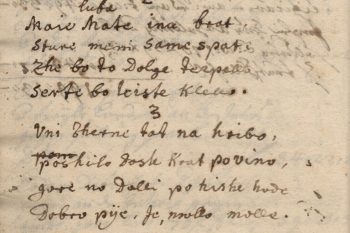 lube
Maie Mate ina brat,
Sture meni Same spati
Zhe bo to Dolge terpeus
Serte bo leiste Kleus.
3
Uni Zherne tat na hribo,
poshilo dask Krat po vino,
gore no Dalli po hishe hode
Dobro pije, Je, mollo molle.